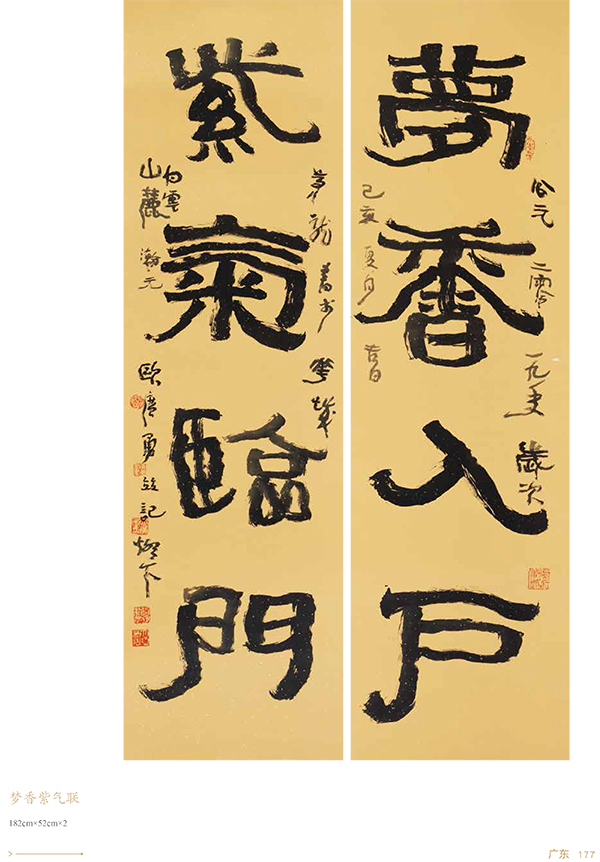 夢香入戶
公元二零一九年歲次
己亥夏月吉日
紫氣臨門
白雲山麓瀚元
歐廣勇並記燈下
梦香紫气联
182cm×52cm×2
广东 177